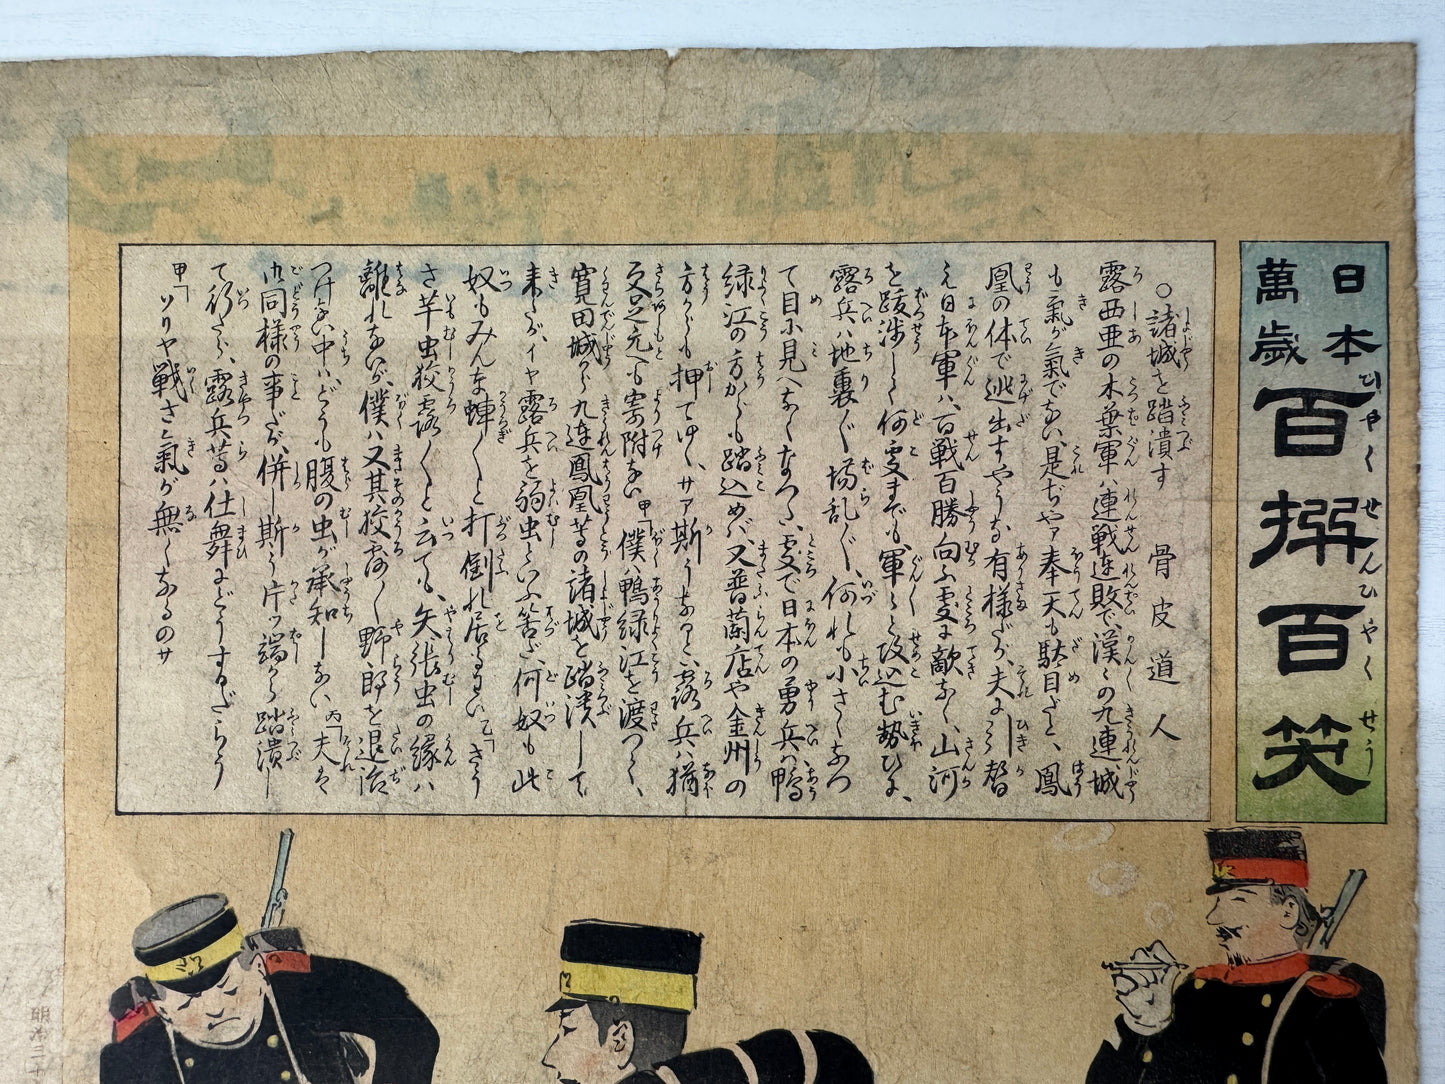 日本
萬歳
百撰百笑
ひやくせんひやくせう
○諸城を踏潰す　骨皮道人
露西亜の木葉軍ハ連戦連敗で、漢々の九連城
も氣が氣でない、是ぢやァ奉天も駄目だと、鳳
凰の体で逃出すやうな有様だが、夫に引替
え日本軍ハ、百戦百勝向ふ處に敵なく、山河
を跋渉して何處までも軍々と攻込む勢ひに、
露兵ハ地裏〱場乱〱、何れも小さくなつ
て目に見へなくなつた、處で日本の勇兵ハ鴨
緑江の方からも踏込めバ、又普蘭店や金州の
方からも押てゆく、サァ斯うなると、露兵ハ猶
更の足元へも寄附ない、甲「僕ハ鴨緑江を渡つて、
寛田城から九連鳳凰等の諸城を踏潰して
来たが、イヤ露兵を弱虫とハいふ筈だ、何奴も此
奴もみんな〱と打倒れ居るわい 乙「さう
さ芋虫狡露〱と云ても、矢張虫の縁ハ
離れないが、僕ハ又其狡露〱野郎を退治
つけない中ハ、どうも腹の虫が承知しない、丙「夫は
御同様の事だが、併し斯う片ッ端から踏潰し
て行たら、露兵等ハ仕舞にどうするだらう
甲「ソリヤ戦さ氣が無くなるのサ
明治三十